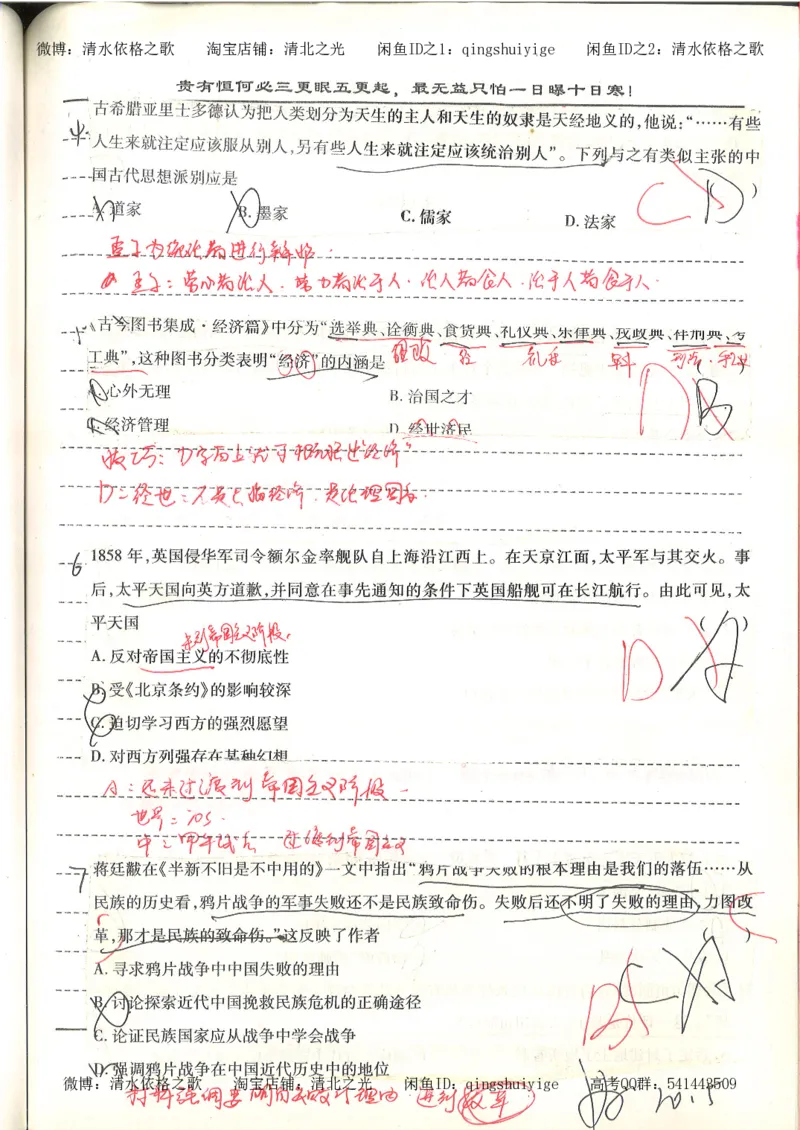 微博：清水依格之歌 淘宝店铺：清北之光 闲鱼ID之1：qingshuiyige 闲鱼ID之2：清水依格之歌
贵有恒何必三更眠五更起，最无益只怕一日曝十日寒！
古希腊亚里士多德认为把人类划分为天生的主人和天生的奴隶是天经地义的，他说：“……有些
人生来就注定应该服从别人，另有些人生来就注定应该统治别人”。下列与之有类似主张的中
国古代思想派别应是 （ ）
A. 道家 B. 墨家 C. 儒家 D. 法家
C D
孟子：劳心者治人，劳力者治于人，治人者食人，治于人者食于人
《古今图书集成·经济篇》中分为“选举典、诠衡典、食货典、礼仪典、乐律典、戎政典、祥刑典、考
工典”，这种图书分类表明“经济”的内涵是
A. 心外无理 B. 治国之才
C. 经济管理 D. 经世济民
D B
6 1858 年，英国侵华军司令额尔金率舰队自上海沿江西上。在天京江面，太平军与其交火。事
后，太平天国向英方道歉，并同意在事先通知的条件下英国船舰可在长江航行。由此可见，太
平天国 （ ）
A. 反对帝国主义的不彻底性
B. 受《北京条约》的影响较深
C. 迫切学习西方的强烈愿望
D. 对西方列强存在某种幻想
D A
A：还未过渡到帝国主义阶段
7 蒋廷黻在《半新不旧是不中用的》一文中指出“鸦片战争失败的根本理由是我们的落伍……从
民族的历史看，鸦片战争的军事失败还不是民族致命伤。失败后还不明了失败的理由，力图改
革，那才是民族的致命伤。”这反映了作者 （ ）
A. 寻求鸦片战争中中国失败的理由
B. 讨论探索近代中国挽救民族危机的正确途径
C. 论证民族国家应从战争中学会战争
D. 强调鸦片战争在中国近代历史中的地位
B
微博：清水依格之歌 淘宝店铺：清北之光 闲鱼ID：qingshuiyige 高考QQ群：541443509